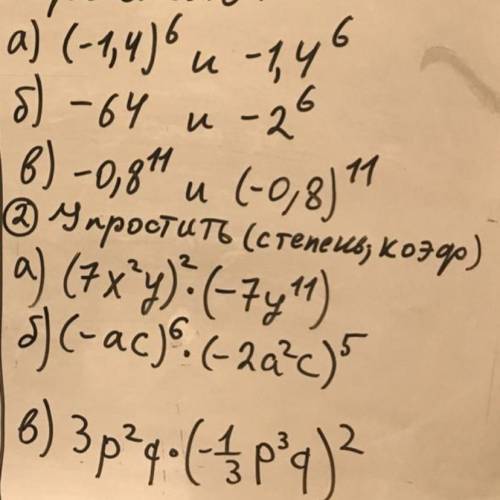 а) (-1,4)⁶ и -1,4⁶
б) -64 и -2⁶
в) -0,8¹¹ и (-0,8)¹¹
② Упростить (степень, коэф)
а) (7x²y)²·(-7y¹¹)
б) (-ac)⁶·(-2a²c)⁵
в) 3p²q·(-1/3 p³q)²